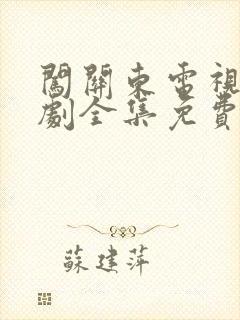 闖關東電視
劇全集免費
蘇建萍